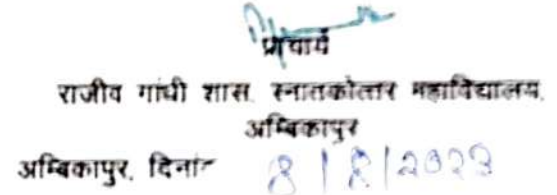 प्राचार्य
राजीव गांधी शास. स्नातकोत्तर महाविद्यालय,
अम्बिकापुर
अम्बिकापुर, दिनांक 8/8/2023